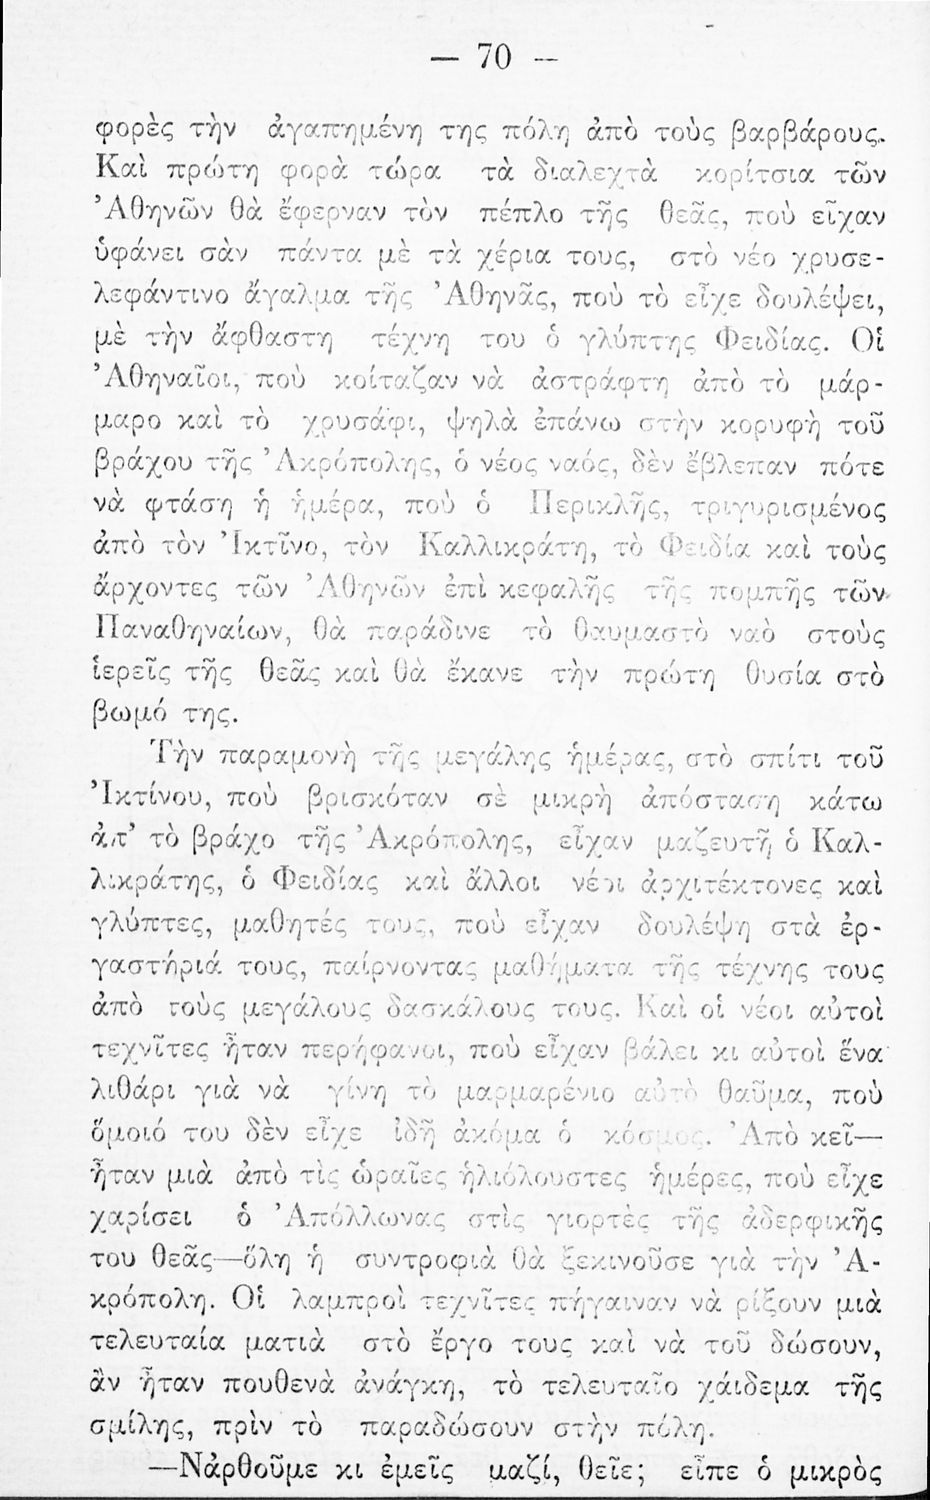 — 70 —
φορὲς τὴν ἀγαπημένη της πόλη ἀπὸ τοὺς βαρβάρους.
Καὶ πρώτη φορὰ τώρα τὰ διαλεχτὰ κορίτσια τῶν
Ἀθηνῶν θὰ ἔφερναν τὸν πέπλο τῆς θεᾶς, ποὺ εἶχαν
ὑφάνει σὰν πάντα μὲ τὰ χέρια τους, στὸ νέο χρυσε-
λεφάντινο ἄγαλμα τῆς Ἀθηνᾶς, ποὺ τὸ εἶχε δουλέψει,
μὲ τὴν ἄφθαστη τέχνη του ὁ γλύπτης Φειδίας. Οἱ
Ἀθηναῖοι, ποὺ κοίταζαν νὰ ἀστράφτη ἀπὸ τὸ μάρ-
μαρο καὶ τὸ χρυσάφι, ψηλὰ ἐπάνω στὴν κορυφὴ τοῦ
βράχου τῆς Ἀκρόπολης, ὁ νέος ναός, δὲν ἔβλεπαν πότε
νὰ φτάση ἡ ἡμέρα, ποὺ ὁ Περικλῆς, τριγυρισμένος
ἀπὸ τὸν Ἰκτῖνο, τὸν Καλλικράτη, τὸ Φειδία καὶ τοὺς
ἄρχοντες τῶν Ἀθηνῶν ἐπὶ κεφαλῆς τῆς πομπῆς τῶν
Παναθηναίων, θὰ παράδινε τὸ θαυμαστὸ ναὸ στοὺς
ἱερεῖς τῆς θεᾶς καὶ θὰ ἔκανε τὴν πρώτη θυσία στὸ
βωμό της.
Τὴν παραμονὴ τῆς μεγάλης ἡμέρας, στὸ σπίτι τοῦ
Ἰκτίνου, ποὺ βρισκόταν σὲ μικρὴ ἀπόσταση κάτω
ἀπ’ τὸ βράχο τῆς Ἀκρόπολης, εἶχαν μαζευτῆ ὁ Καλ-
λικράτης, ὁ Φειδίας καὶ ἄλλοι νέοι ἀρχιτέκτονες καὶ
γλύπτες, μαθητές τους, ποὺ εἶχαν δουλέψη στὰ ἐρ-
γαστήριά τους, παίρνοντας μαθήματα τῆς τέχνης τους
ἀπὸ τοὺς μεγάλους δασκάλους τους. Καὶ οἱ νέοι αὐτοὶ
τεχνῖτες ἦταν περήφανοι, ποὺ εἶχαν βάλει κι αὐτοὶ ἕνα
λιθάρι γιὰ νὰ γίνη τὸ μαρμαρένιο αὐτὸ θαῦμα, ποὺ
ὅμοιό του δὲν εἶχε ἰδῆ ἀκόμα ὁ κόσμος. Ἀπὸ κεῖ—
ἦταν μιὰ ἀπὸ τὶς ὡραῖες ἡλιόλουστες ἡμέρες, ποὺ εἶχε
χαρίσει ὁ Ἀπόλλωνας στὶς γιορτὲς τῆς ἀδερφικῆς
του θεᾶς—ὅλη ἡ συντροφιὰ θὰ ξεκινοῦσε γιὰ τὴν Ἀ-
κρόπολη. Οἱ λαμπροὶ τεχνῖτες πήγαιναν νὰ ρίξουν μιὰ
τελευταία ματιὰ στὸ ἔργο τους καὶ νὰ τοῦ δώσουν,
ἂν ἦταν πουθενὰ ἀνάγκη, τὸ τελευταῖο χάιδεμα τῆς
σμίλης, πρὶν τὸ παραδώσουν στὴν πόλη.
—Νἀρθοῦμε κι ἐμεῖς μαζί, θεῖε; εἶπε ὁ μικρὸς